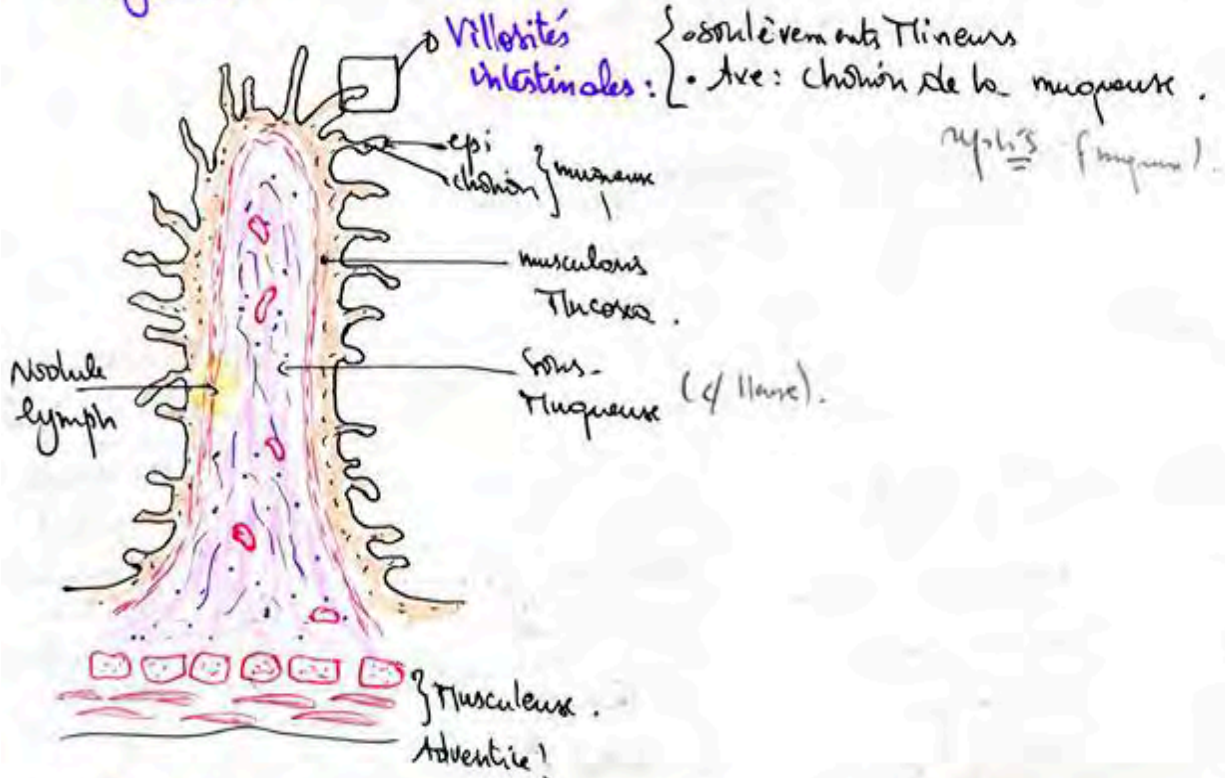 Villosités
intestinales :
• soulèvements Mineurs
• Axe : chorion de la muqueuse .
epi
chorion } muqueuse
muscularis
Mucosea .
Sous-
Muqueuse
Nodule
lymph
} Musculeuse .
Adventice !